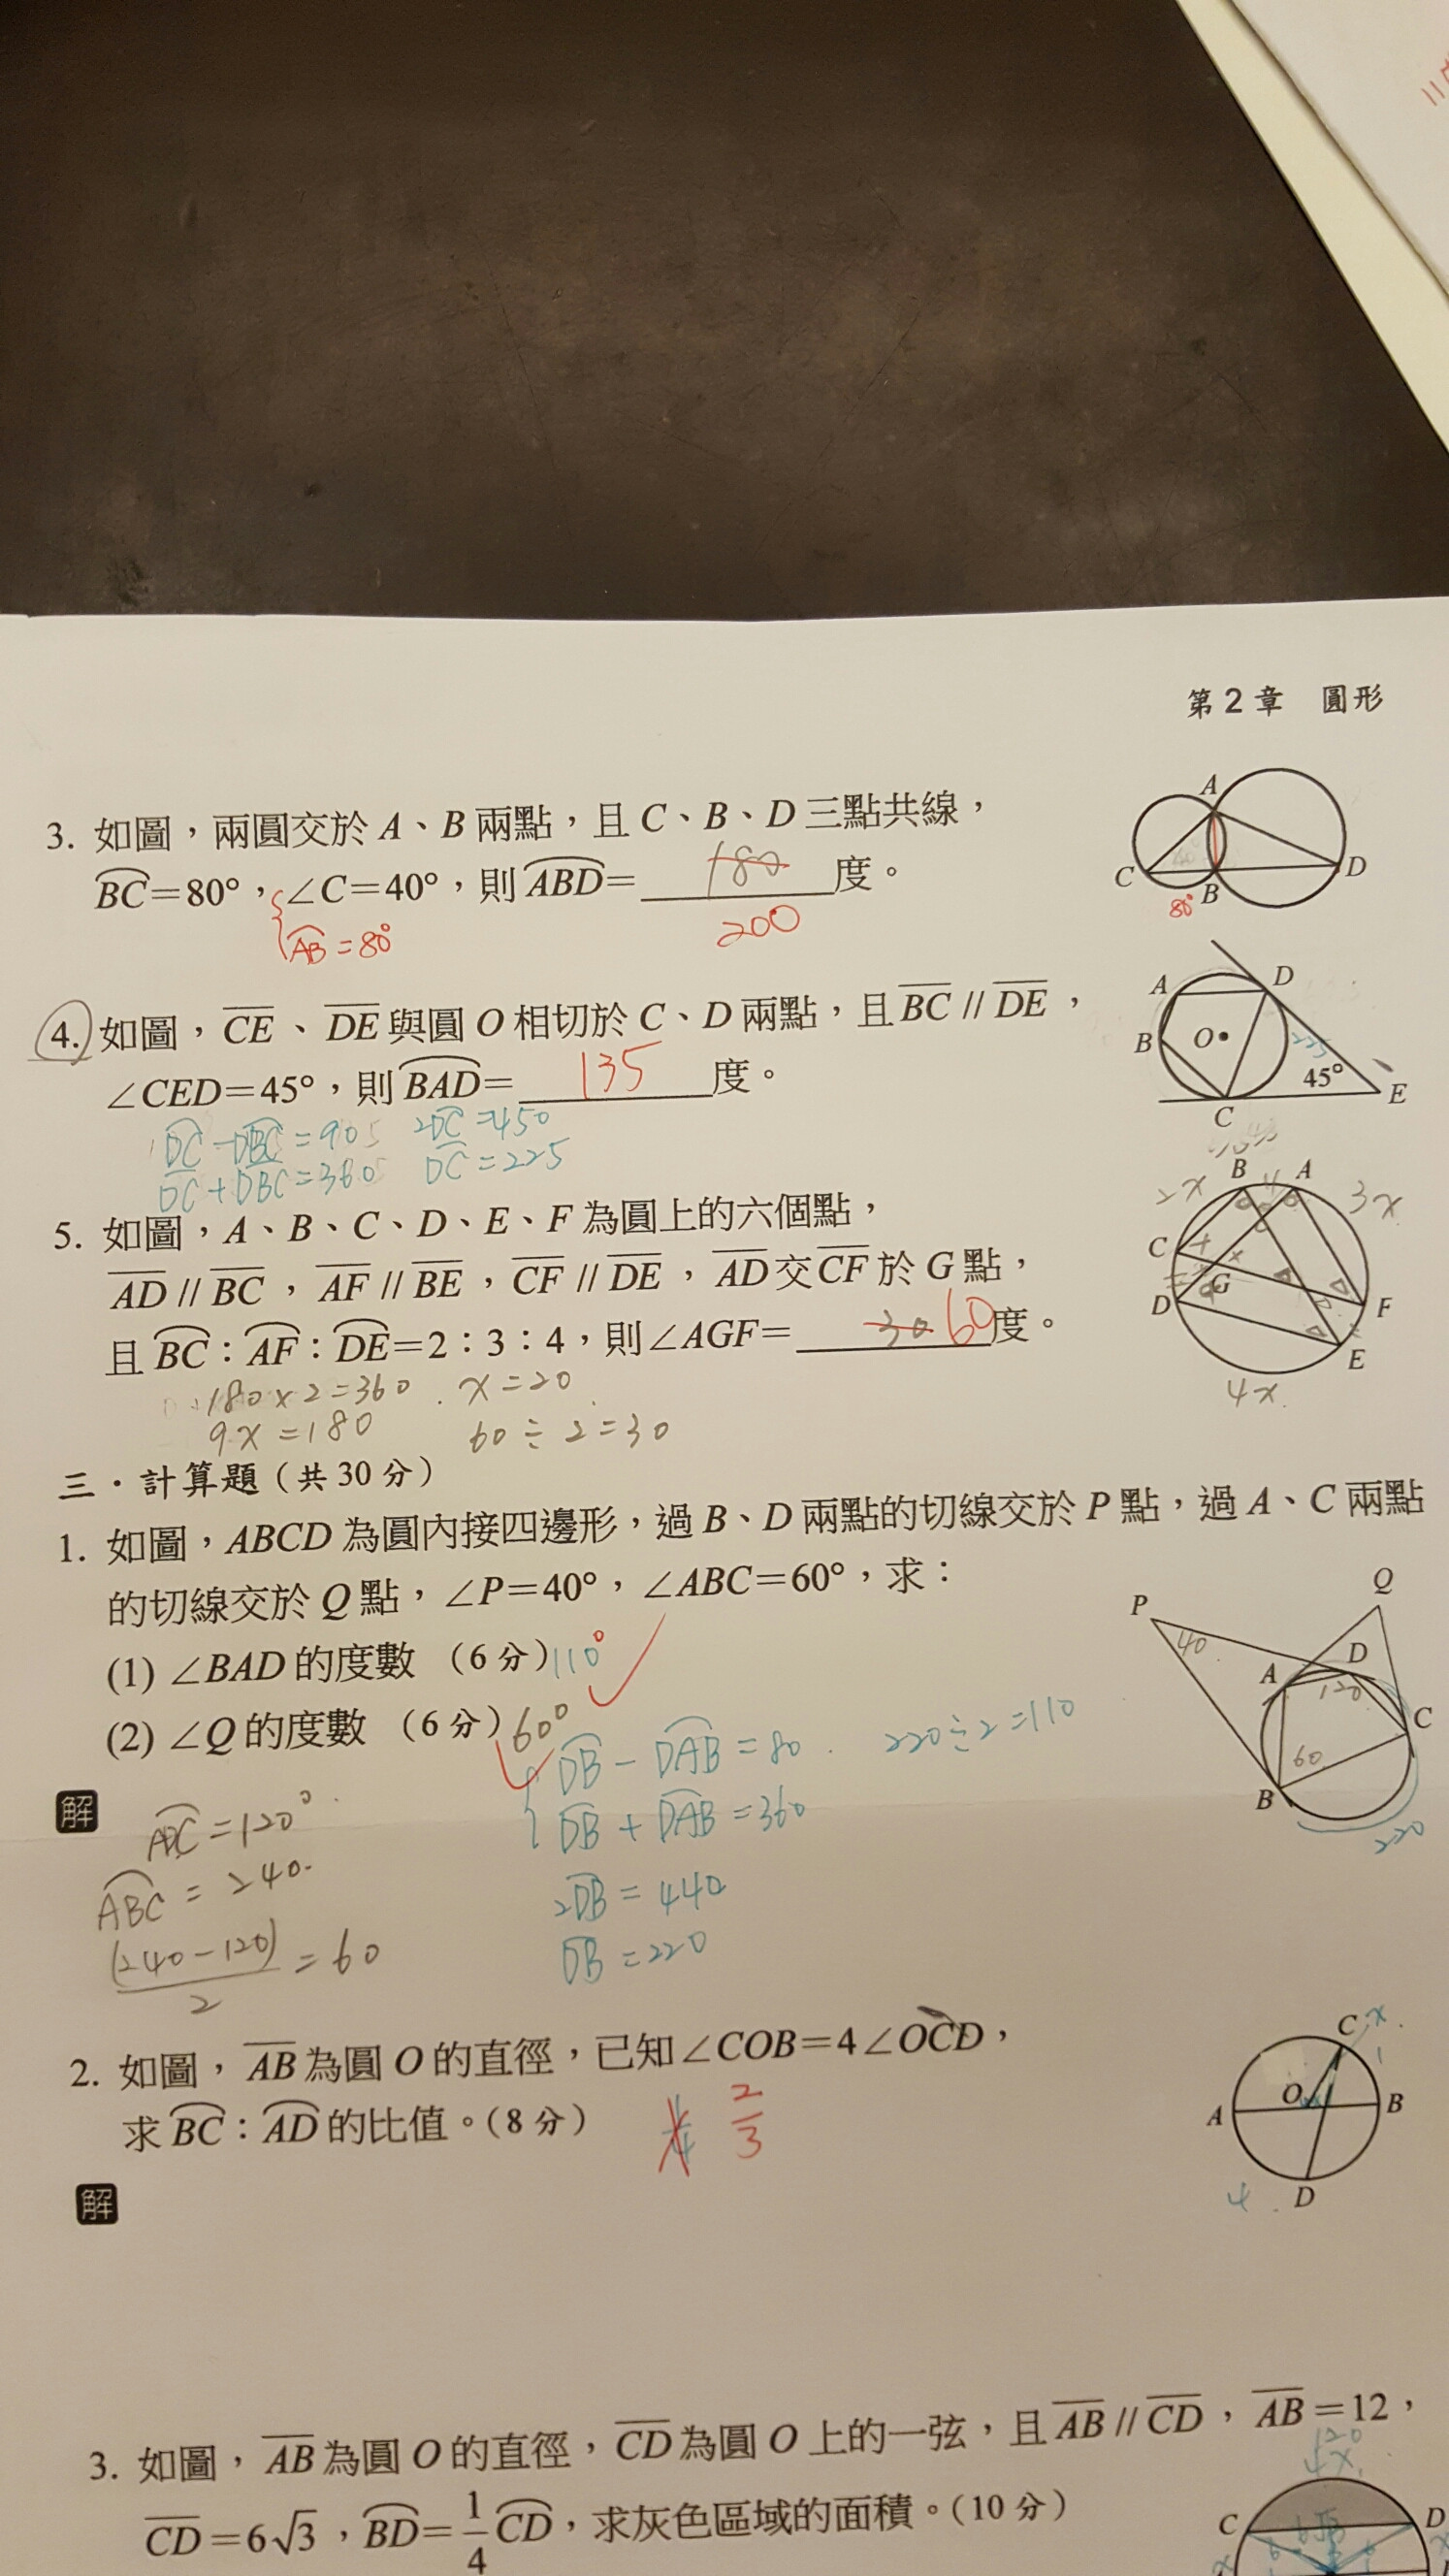 第2章 圓形
3. 如圖，兩圓交於 A、B 兩點，且 C、B、D 三點共線，
BC=80°，∠C=40°，則 ABD= 180 度。
AB=80°
200
80°
A
C
B
D
4. 如圖，CE、DE與圓 O 相切於 C、D 兩點，且 BC // DE，
∠CED=45°，則 BAD= 135 度。
DC－DBC=90 2DC=450
DC+DBC=360 DC=225
A
D
B
O
225
45°
E
C
5. 如圖，A、B、C、D、E、F 為圓上的六個點，
AD // BC，AF // BE，CF // DE，AD交CF 於 G 點，
且 BC：AF：DE=2：3：4，則∠AGF= 30 60 度。
180×2=360 x=20
9x=180 60÷2=30
2x
B
A
3x
C
G
D
F
E
4x
三．計算題（共30分）
1. 如圖，ABCD 為圓內接四邊形，過 B、D 兩點的切線交於 P 點，過 A、C 兩點
的切線交於 Q 點，∠P=40°，∠ABC=60°，求：
(1) ∠BAD 的度數（6分）110°
(2) ∠Q 的度數（6分）60°
P
Q
40
A
D
120
C
60
B
220
解
ADC=120°
ABC=240
(240－120)
2
=60
DB－DAB=80
DB+DAB=360
2DB=440
DB=220
220÷2=110
2. 如圖，AB 為圓 O 的直徑，已知∠COB=4∠OCD，
求 BC：AD 的比值。（8分）
2
3
C
x
O
A
B
4
D
解
3. 如圖，AB 為圓 O 的直徑，CD 為圓 O 上的一弦，且 AB // CD，AB=12，
CD=6√3，BD=1/4 CD，求灰色區域的面積。（10分）
120
4x
C
D